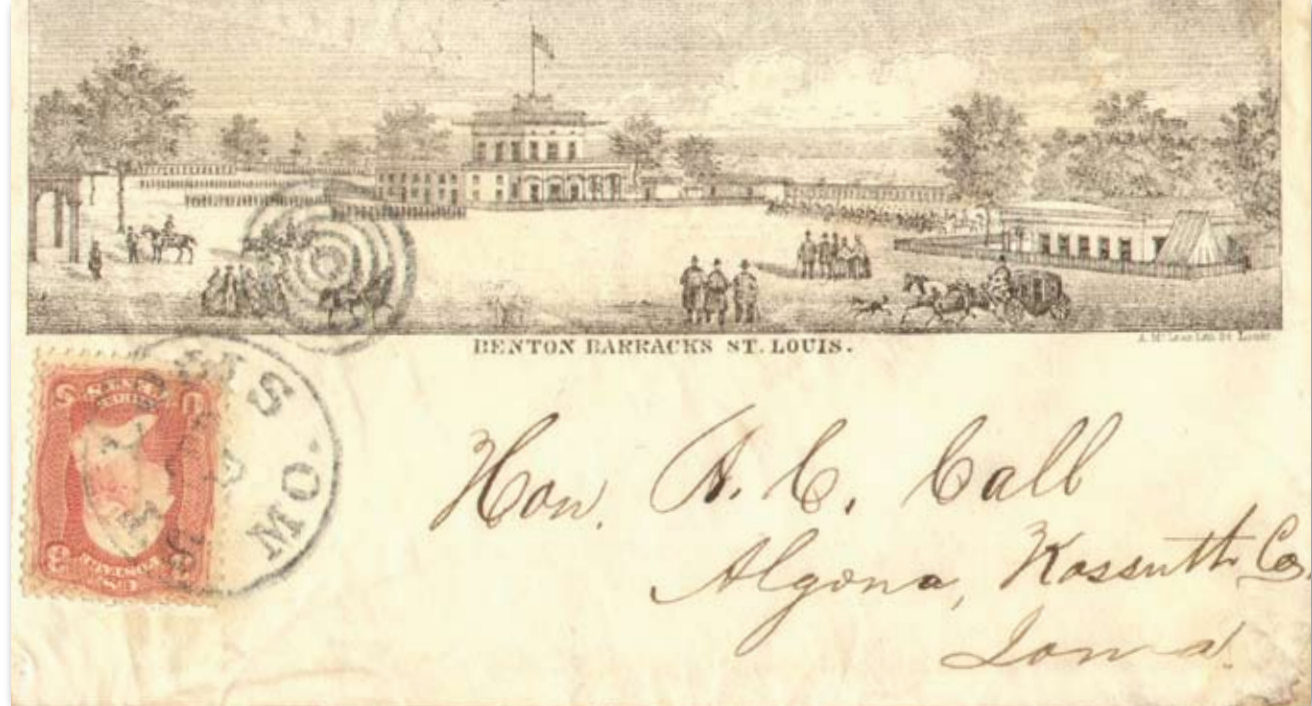 BENTON BARRACKS ST. LOUIS.
A. McLean Lith St Louis.
MO.
Hon. A. C. Call
Algona, Kossuth Co.
Iowa.